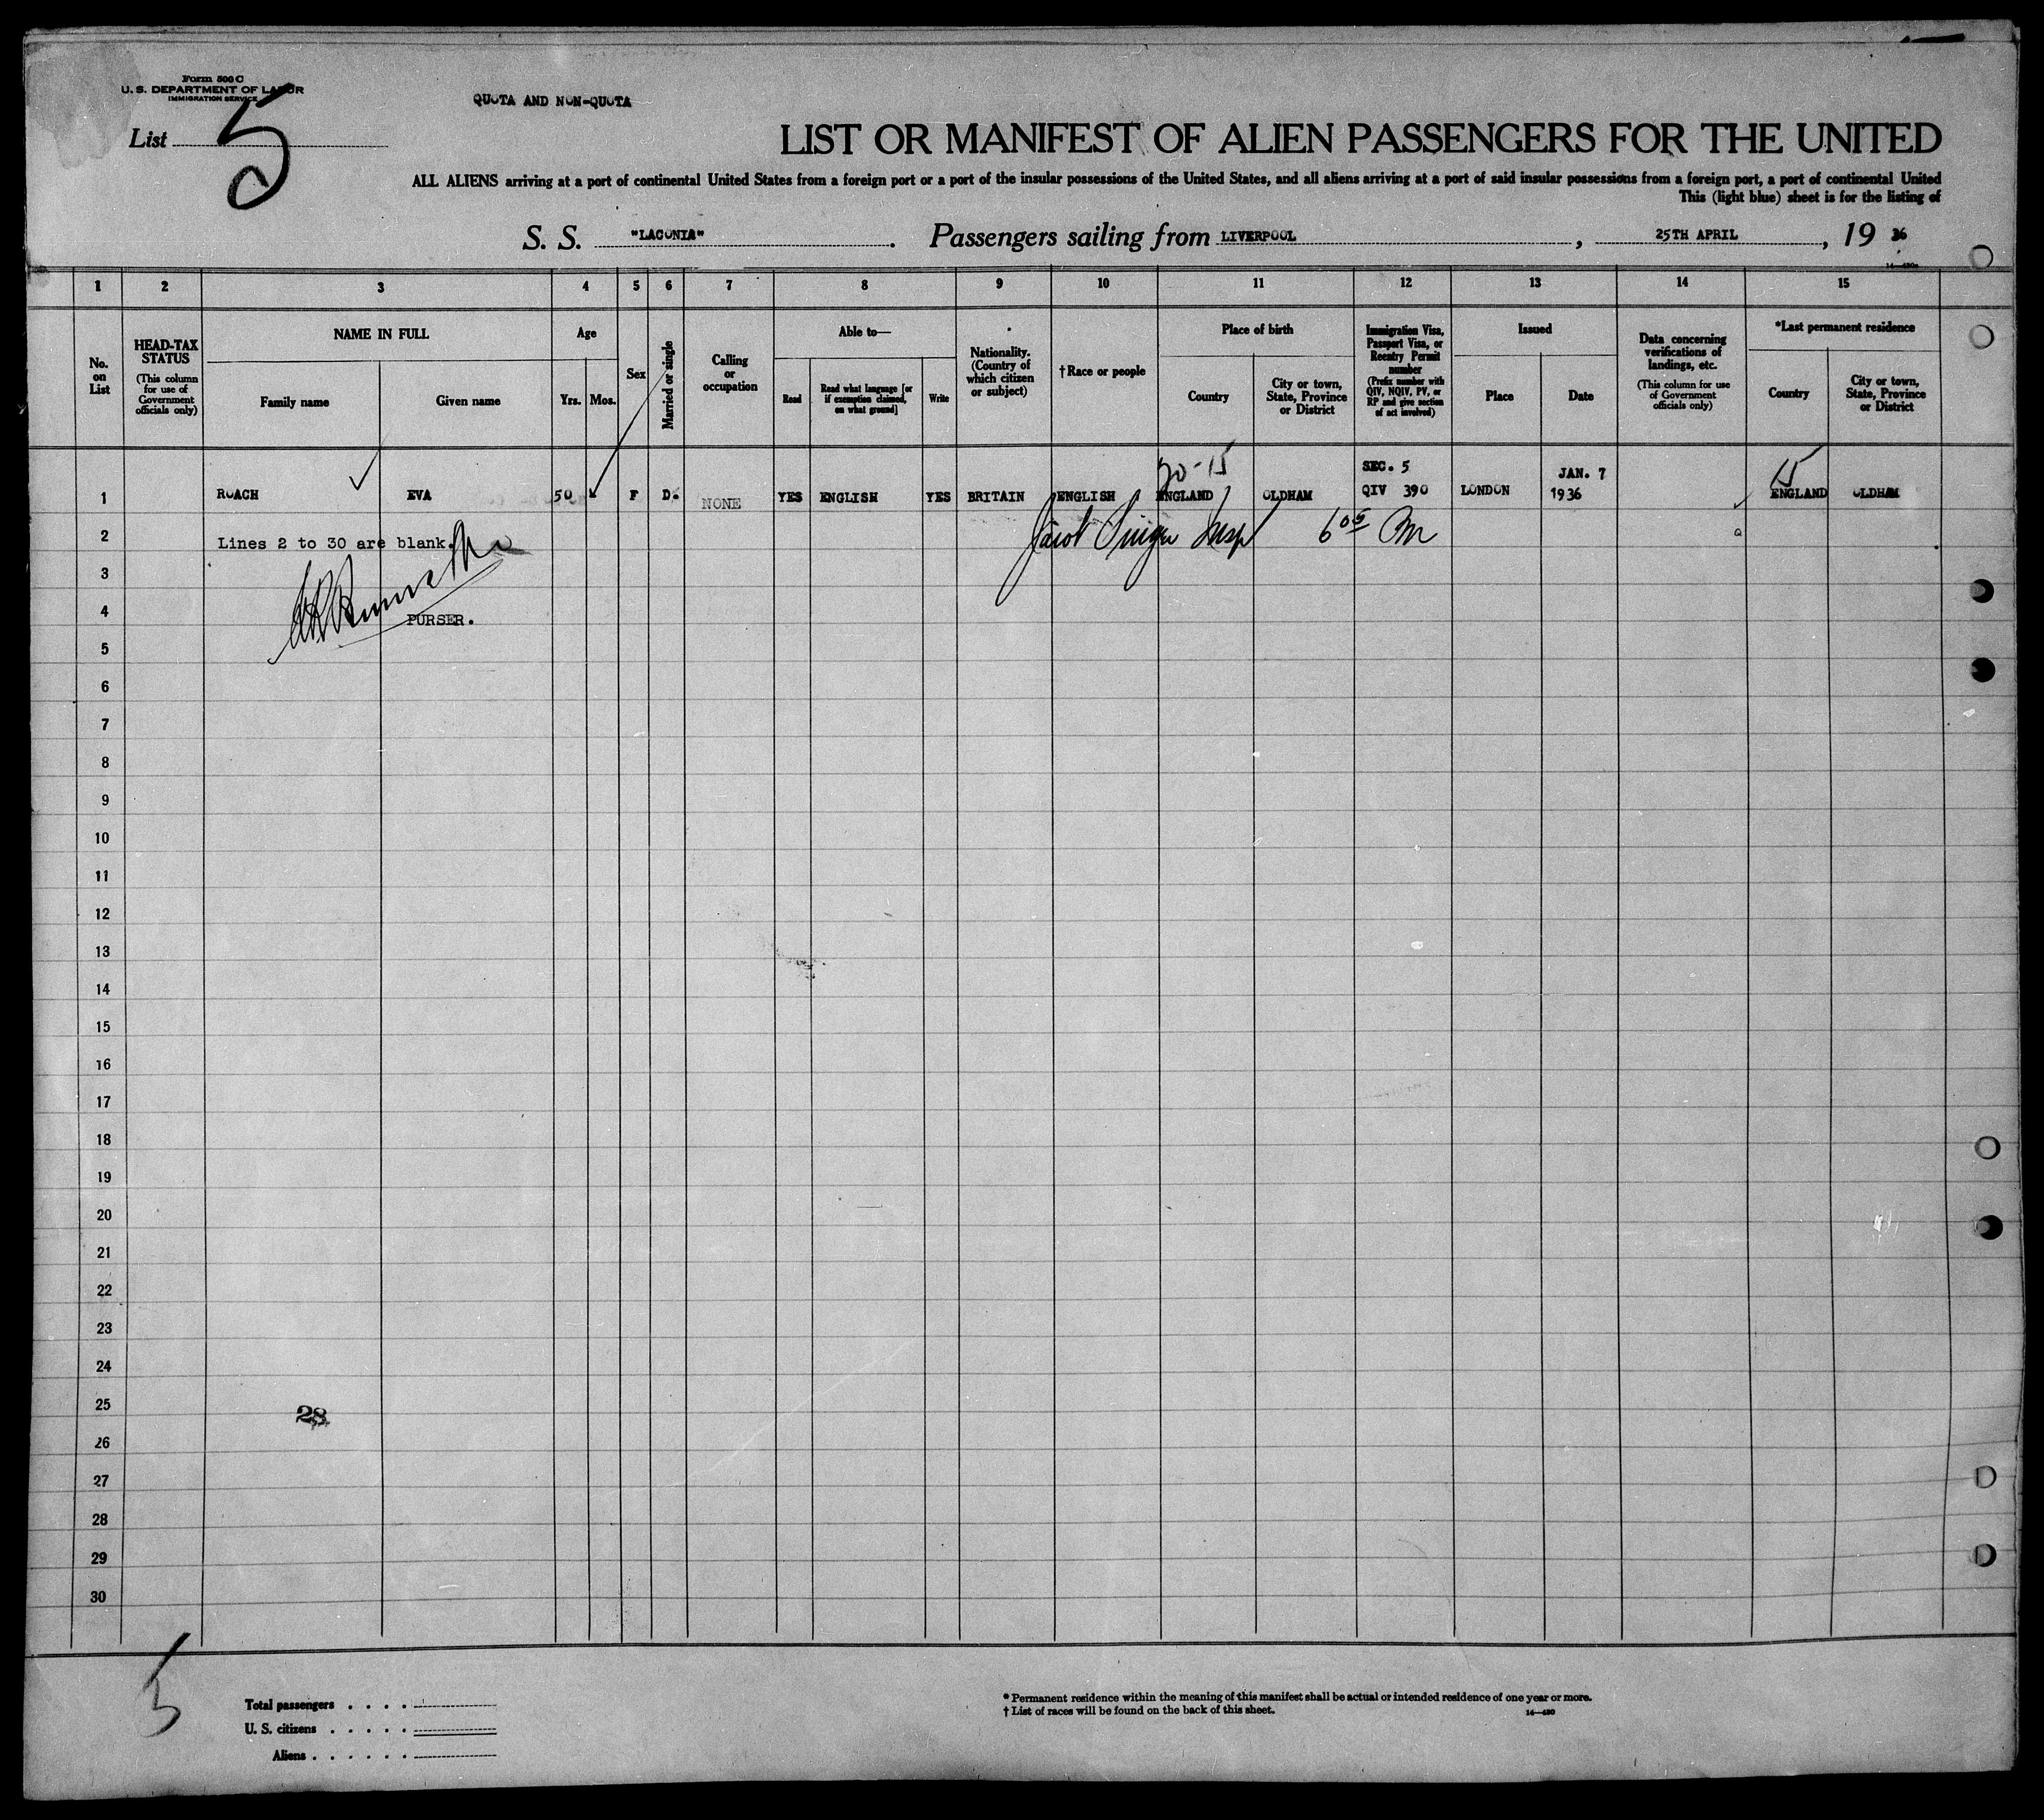 Form 500 C
U. S. DEPARTMENT OF LABOR
IMMIGRATION SERVICE
QUOTA AND NON-QUOTA
List 5
LIST OR MANIFEST OF ALIEN PASSENGERS FOR THE UNITED
ALL ALIENS arriving at a port of continental United States from a foreign port or a port of the insular possessions of the United States, and all aliens arriving at a port of said insular possessions from a foreign port, a port of continental United
This (light blue) sheet is for the listing of
S. S. "LACONIA". Passengers sailing from LIVERPOOL, 25TH APRIL, 19 36
1 2 3 4 5 6 7 8 9 10 11 12 13 14 15
No. on List
HEAD-TAX STATUS
(This column for use of Government officials only)
NAME IN FULL
Family name
Given name
Age
Yrs.
Mos.
Sex
Married or single
Calling or occupation
Able to—
Read
Read what language [or if exemption claimed, on what ground]
Write
Nationality. (Country of which citizen or subject)
†Race or people
Place of birth
Country
City or town, State, Province or District
Immigration Visa, Passport Visa, or Reentry Permit number
(Prefix number with QIV, NQIV, PV, or RP and give section of act involved)
Issued
Place
Date
Data concerning verifications of landings, etc.
(This column for use of Government officials only)
*Last permanent residence
Country
City or town, State, Province or District
20-15 SEC. 5 JAN. 7 15
1 ROACH EVA 50 F D. NONE YES ENGLISH YES BRITAIN ENGLISH ENGLAND OLDHAM QIV 390 LONDON 1936 ENGLAND OLDHAM
2 Lines 2 to 30 are blank. Jacob Singer Insp 6 05 Pm
3
4 PURSER.
5
6
7
8
9
10
11
12
13
14
15
16
17
18
19
20
21
22
23
24
25 28
26
27
28
29
30
5
Total passengers . . . .
U. S. citizens . . . . .
Aliens . . . . . .
* Permanent residence within the meaning of this manifest shall be actual or intended residence of one year or more.
† List of races will be found on the back of this sheet. 14—430